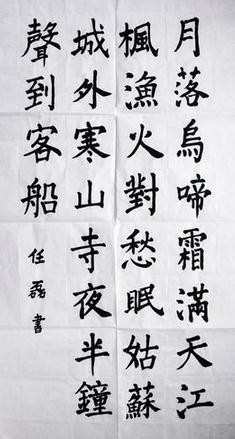 月落烏啼霜滿天江
楓漁火對愁眠姑蘇
城外寒山寺夜半鐘
聲到客船
任磊書